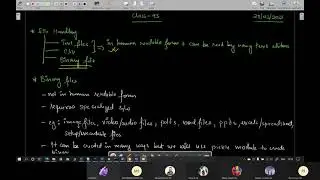 Class - 93
File Handling
Text files
CSV
Binary file
in human readable form & can be read by using text editors
* Binary files
- not in human readable form
- requires specialized s/w
- eg: image files, video/audio files, pdfs, word files, ppts, excels/spreadsheet,
setup/executable files
- It can be created in many ways but we will use pickle module to create
binary